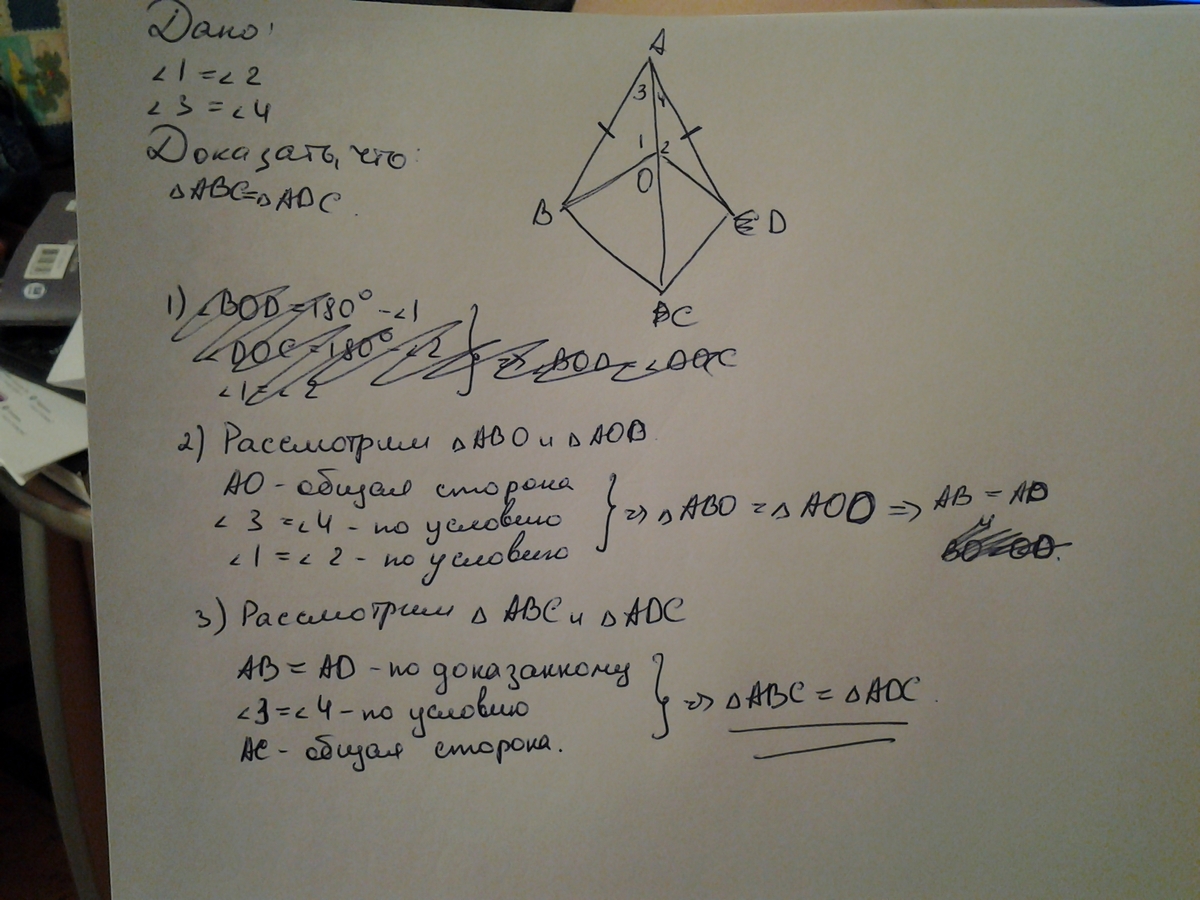 Дано:
∠1 = ∠2
∠3 = ∠4
Доказать, что:
△ABC=△ADC.
A
3 4
1 2
O
B
D
C
1) ∠BOD = 180° - ∠1
∠DOC = 180° - ∠2
∠1 = ∠2
2) Рассмотрим △ABO и △AOB.
AO - общая сторона
∠3 = ∠4 - по условию
∠1 = ∠2 - по условию
} => △ABO = △AOD => AB = AD
3) Рассмотрим △ABC и △ADC
AB = AD - по доказанному
∠3 = ∠4 - по условию
AC - общая сторона.
} => △ABC = △ADC.